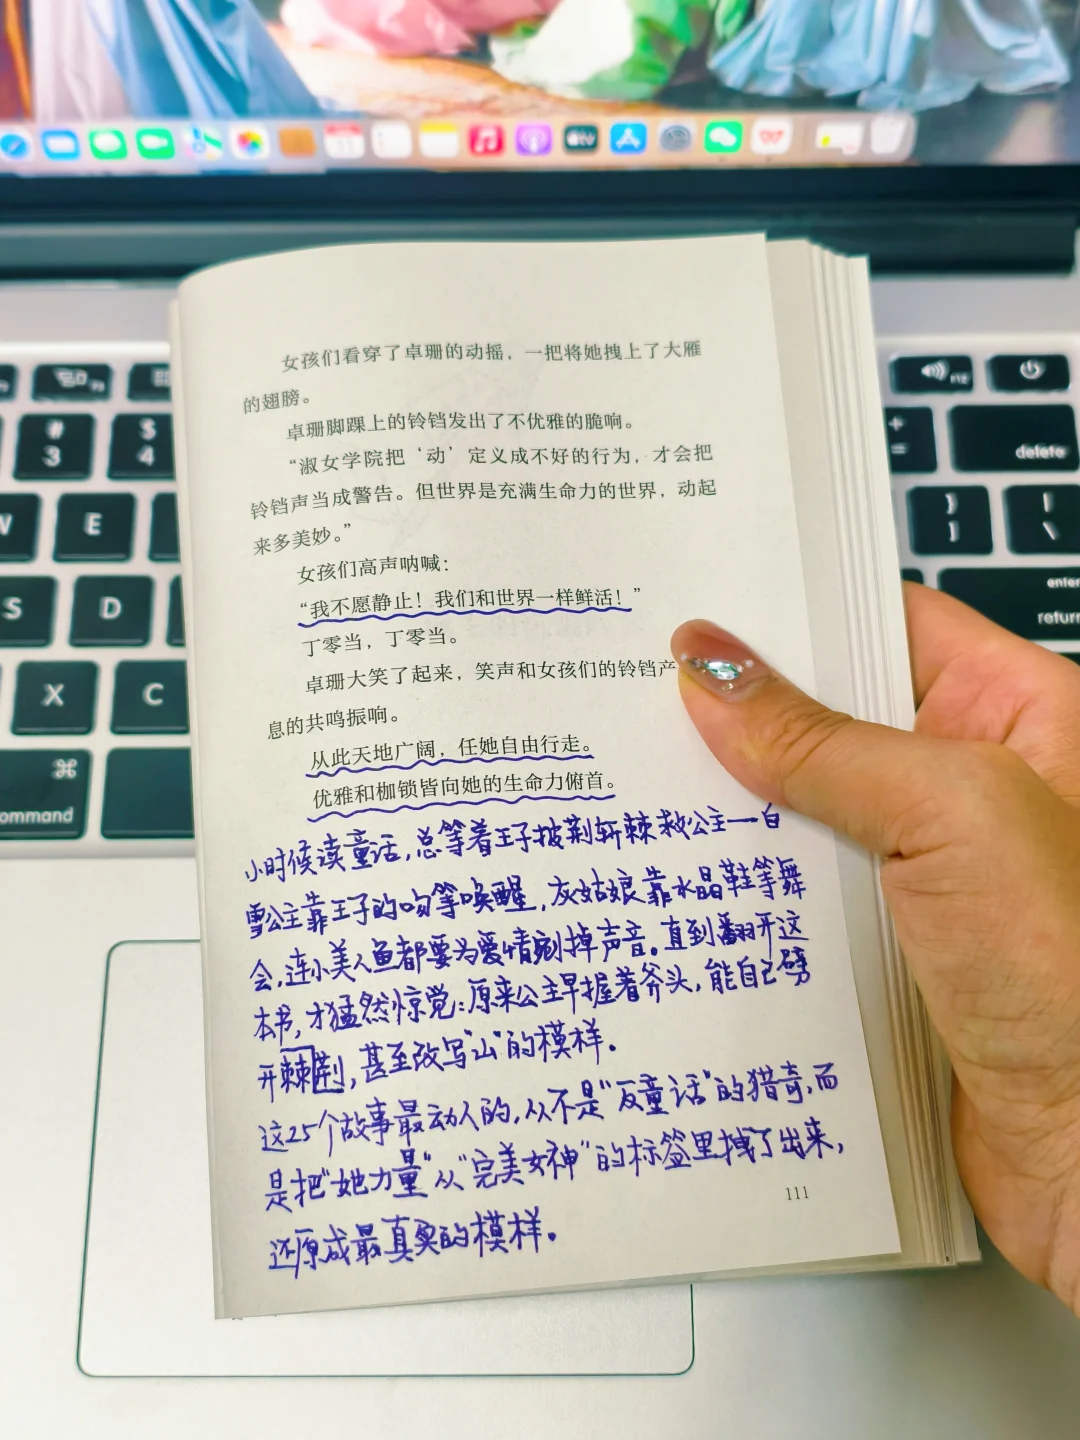 女孩们看穿了卓珊的动摇，一把将她拽上了大雁
的翅膀。
卓珊脚踝上的铃铛发出了不优雅的脆响。
“淑女学院把‘动’定义成不好的行为，才会把
铃铛声当成警告。但世界是充满生命力的世界，动起
来多美妙。”
女孩们高声呐喊：
“我不愿静止！我们和世界一样鲜活！”
丁零当，丁零当。
卓珊大笑了起来，笑声和女孩们的铃铛产
息的共鸣振响。
从此天地广阔，任她自由行走。
优雅和枷锁皆向她的生命力俯首。
小时候读童话，总等着王子披荆斩棘救公主——白
雪公主靠王子的吻等唤醒，灰姑娘靠水晶鞋等舞
会，连小美人鱼都要为爱情割掉声音。直到翻开这
本书，才猛然惊觉：原来公主早握着斧头，能自己劈
开棘荆，甚至改写“山”的模样。
这25个故事最动人的，从不是“反童话”的猎奇，而
是把“她力量”从“完美女神”的标签里拽了出来，
还原成最真实的模样。
111
F12
delete
# 3
$ 4
+ =
W
E
} ]
| \
S
D
enter
return
X
C
⌘
command